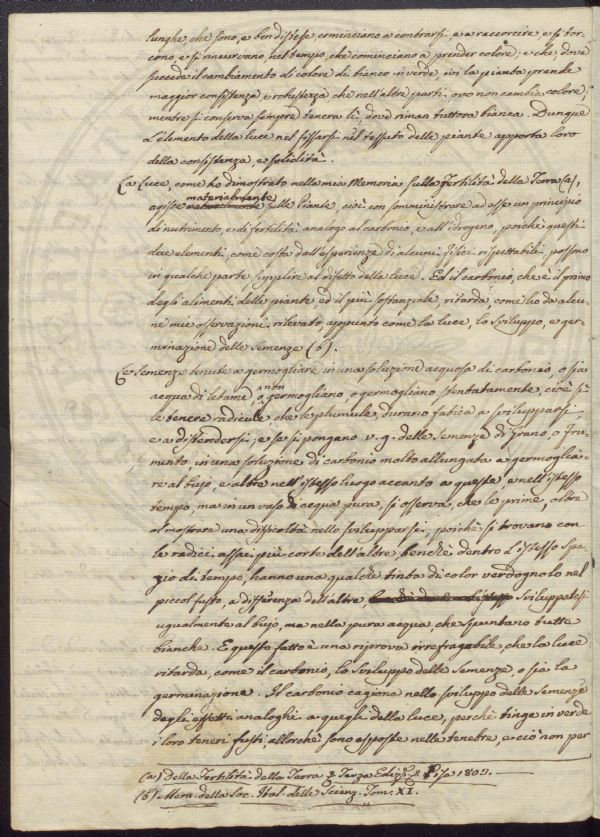 lunghe, che sono, e ben distese cominciano a contrarsi, e a raccorcire e si tor-
cono, e si rincurvano, nel tempo, che cominciano a prender colore, e che, dove
succede il cambiamento di colore di bianco in verde, ivi la pianta prende
maggior consistenza, e robustezza che nell'altre parti, ove non cambia colore,
mentre si conserva sempre tenera lì, dove riman tuttora bianca. Dunque
l'elemento della luce nel fissarsi nel tessuto delle piante apporta loro
della consistenza, e solidità.
La luce, come ho dimostrato nella mia Memoria sulla Fertilità della Terra (a),
materialmente
agisce sulle Piante, cioè con somministrare ad esse un principio
di nutrimento, e di fertilità analogo al carbonio, e all'idrogeno, poichè questi
due elementi, come costa dall'esperienze di alcuni Fisici rispettabili, possono
in qualche parte supplire al difetto della luce. Ed il carbonio, che è il primo
degli alimenti delle piante ed il più sostanziale, ritarda, come ho da alcu-
ne mie osservazioni rilevato, appunto come la luce, lo sviluppo, e ger-
minazione delle semenze (b).
Le semenze tenute a germogliare in una soluzione acquosa di carbonio, o sia
acqua di letame, o non germogliano, o germogliano stentatamente, cioè sì
le tenere radicule, che le plumule, durano fatica a svilupparsi,
e a distendersi, e se si pongano v. g. delle semenze di Grano, o Fru-
mento, in una soluzione di carbonio molto allungata a germoglia-
re al bujo, e altre nell'istesso luogo accanto a queste, e nell'istesso
tempo, ma in un vaso di acqua pura, si osserva, che le prime, oltre
al mostrare una difficoltà nello svilupparsi, poichè si trovano con
le radici assai più corte dell'altre, benchè dentro l'istesso spa-
zio di tempo, hanno una qualche tinta di color verdognolo nel
piccol fusto, a differenza dell'altre, sviluppatesi
ugualmente al bujo, ma nella pura acqua, che spuntano tutte
bianche. E questo fatto è una riprova irrefragabile, che la luce
ritarda, come il carbonio, lo sviluppo delle semenze, o sia la
germinazione. Il carbonio cagiona nello sviluppo delle semenze
degli effetti analoghi a quegli della luce, perchè tinge in verde
i loro teneri fusti, allorchè sono esposte nelle tenebre, e ciò non per
(a) Della Fertilità della Terra Terza Ediz. Pisa 1803.
(b) Mem. della Soc. Ital. delle Scienz. Tom. XI.